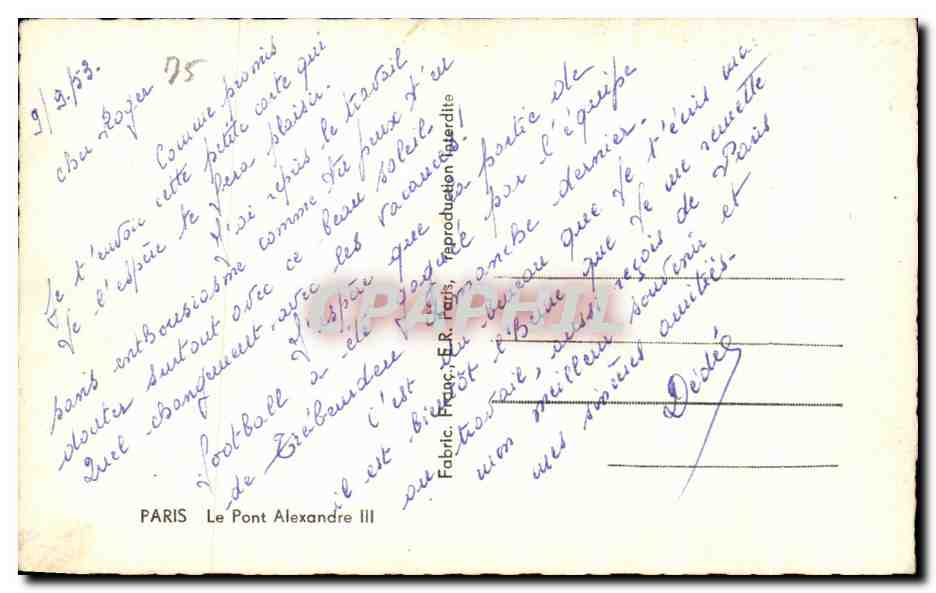 9/9/53.
75
Cher Roger
Comme promis
Je t'envoie cette petite carte qui
Je l'espère te fera plaisir.
J'ai repris le travail
sans enthousiasme comme tu peux t'en
douter surtout avec ce beau soleil.
Quel changement avec les vacances!
J'espère que la partie de
football a été gagnée par l'équipe
de Trébeurden dimanche dernier.
C'est du bureau que Je t'écris ma
il est bientôt que Je me remette
au travail, aussi reçois de Paris
mon meilleur souvenir et
mes sincères amitiés.
Dédée
Fabric. Franç., E.R. Paris, reproduction interdite
CPAPHIL
PARIS Le Pont Alexandre III